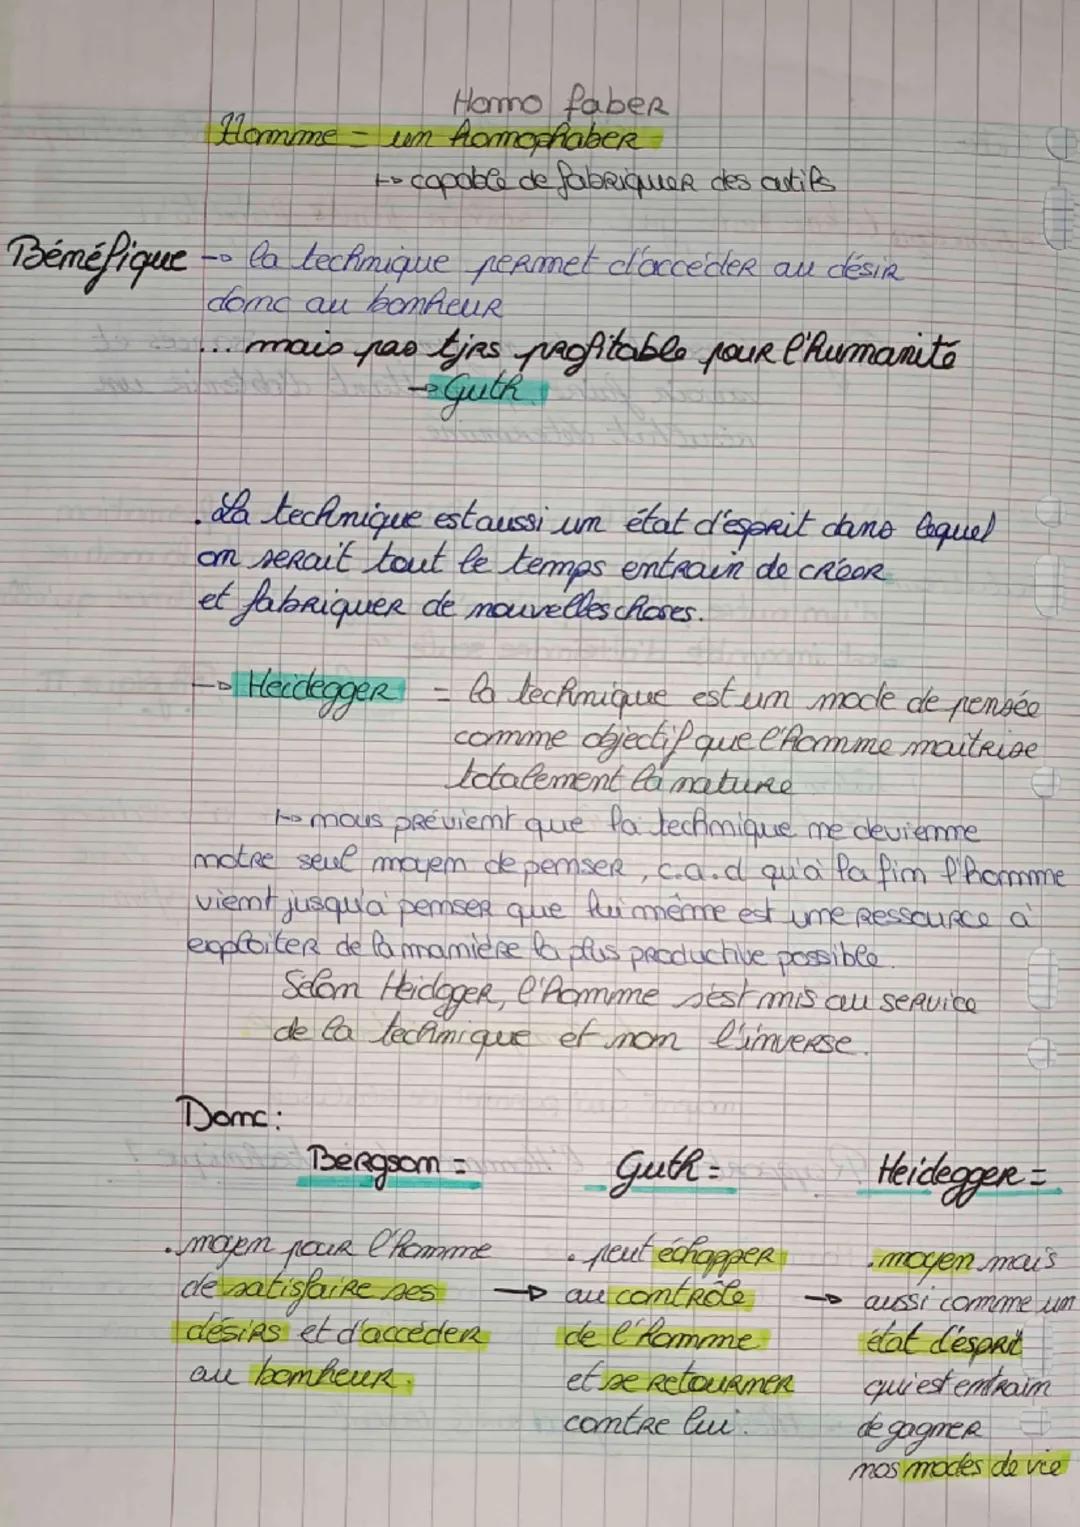 Homo faber
Homme = un homophaber
↳ capable de fabriquer des outils
Bénéfique → la technique permet d'accéder au désir
donc au bonheur
... mais pas tjrs profitable pour l'humanité
→ Guth
. La technique est aussi un état d'esprit dans lequel
on serait tout le temps entrain de créer
et fabriquer de nouvelles choses.
→ Heidegger = la technique est un mode de pensée
comme objectif que l'homme maitrise
totalement la nature
↳ nous prévient que la technique ne devienne
notre seul moyen de penser, c.a.d qu'à la fin l'homme
vient jusqu'à penser que lui même est une ressource à
exploiter de la manière la plus productive possible.
Selon Heidegger, l'homme s'est mis au service
de la technique et non l'inverse.
Donc:
Bergson = Guth = Heidegger =
. moyen pour l'homme
de satisfaire ses
désirs et d'accéder
au bonheur.
. peut échapper
→ au contrôle
de l'homme
et se retourner
contre lui.
. moyen mais
→ aussi comme un
état d'esprit
qui est entrain
de gagner
nos modes de vie